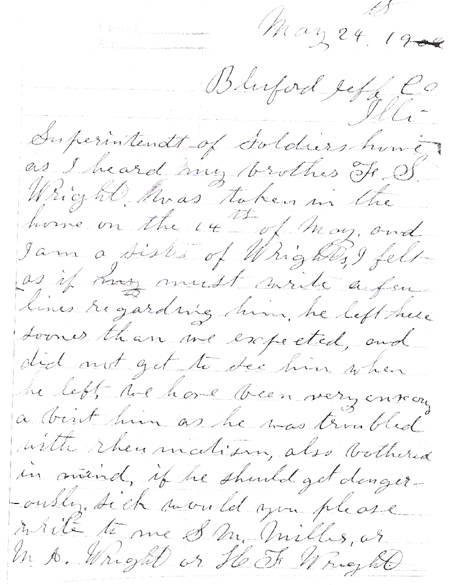 May 24th. 190
Bluford Jeff Co
Illi
Superintendt of Soldiers home
as I heard my brother F. S.
Wright, was taken in the
home on the 14th of May, and
I am a sister of Wrights, I felt
as if must write a few
lines regarding him, he left here
sooner than we expected, and
did not get to see him when
he left, we have been very
a bout him as he was troubled
with rheumatism, also bothered
in mind, if he should get danger-
-ously, sick would you please
write to me S M. Miller, or
M. A. Wright or H F Wright